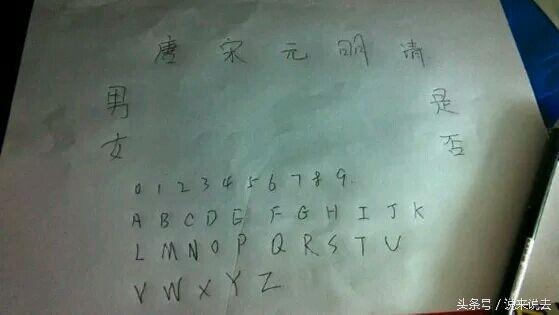 唐 宋 元 明 清
男 是
女 否
0 1 2 3 4 5 6 7 8 9
A B C D E F G H I J K
L M N O P Q R S T U
V W X Y Z
头条号／说来说去